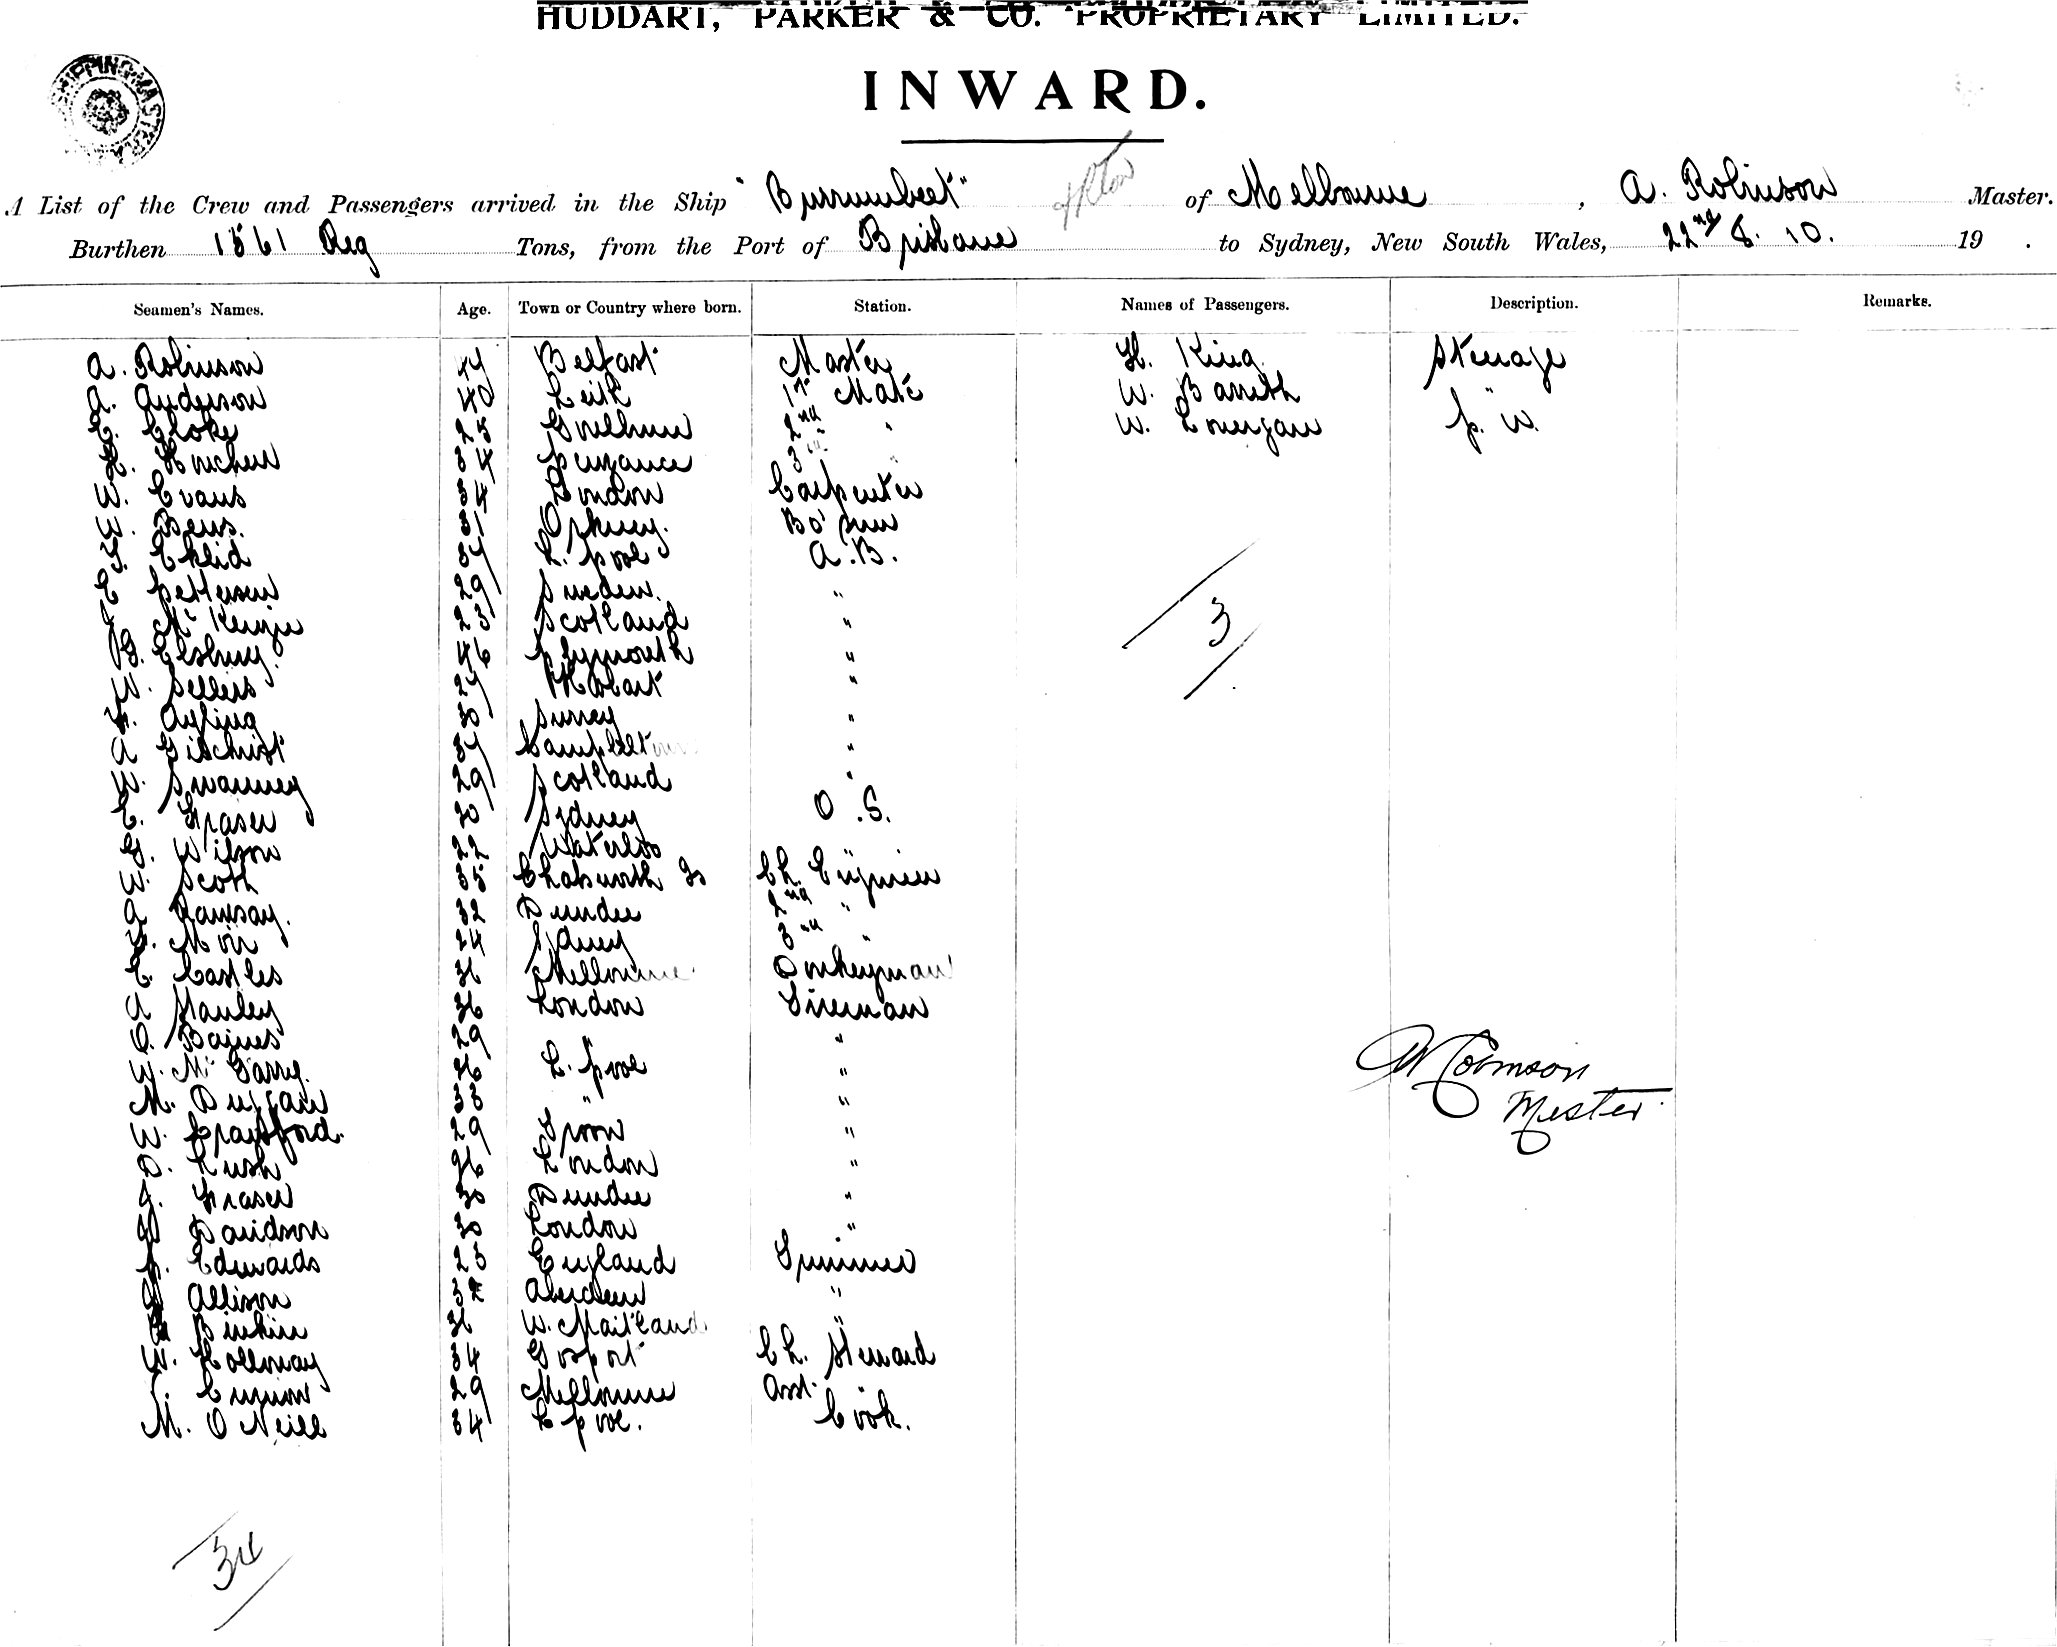 HUDDART, PARKER & CO. PROPRIETARY LIMITED.
INWARD.
SHIPPING MASTER
A List of the Crew and Passengers arrived in the Ship "Burrumbeet" of Melbourne, A. Robinson Master.
Burthen 1561 Reg Tons, from the Port of Brisbane to Sydney, New South Wales, 22nd 8. 10. 19 .
Seamen's Names. Age. Town or Country where born. Station. Names of Passengers. Description. Remarks.
A. Robinson 44 Belfast Master H. King Steerage
A. Anderson 40 Leith 1st Mate W. Barrett "
C. Cloke 25 2nd " W. Lonergan p. w.
34 Penzance 3rd "
W. Evans 34 London Carpenter
W. Bews. 31 Orkney. Bo'sun
Eklid 34 L. pool A.B.
E Petterson 29 Sweden. "
McKenzie 23 Scotland "
Elsbury. 46 Plymouth "
W. Sellers 24 Hobart "
Ayling 30 Surrey "
A Gilchrist 34 Campbeltown "
W. Swanney 29 Scotland "
C. Fraser 20 Sydney O.S.
G. Wilson 22 Waterloo
W. Scott 35 Chatsworth Is Ch. Engineer
A Ramsay. 32 Dundee 2nd "
Moir 24 Sydney 3rd "
C. Castles 36 Melbourne Donkeyman
A Stanley 36 London Fireman
O. Baines 29 " "
W. McGarry. 36 L. pool "
M. Duggan 33 " "
W. Crayfford. 29 Troon "
D. Lush 26 London "
J. Fraser 30 Dundee "
D Davidson 30 London "
P. Edwards 25 England Trimmer
Allison 32 Aberdeen "
36 W. Maitland "
W. Holloway 34 Gosport Ch. Steward
29 Melbourne Asst.
M. O Neill 34 L pool. Cook.
3
Master
34